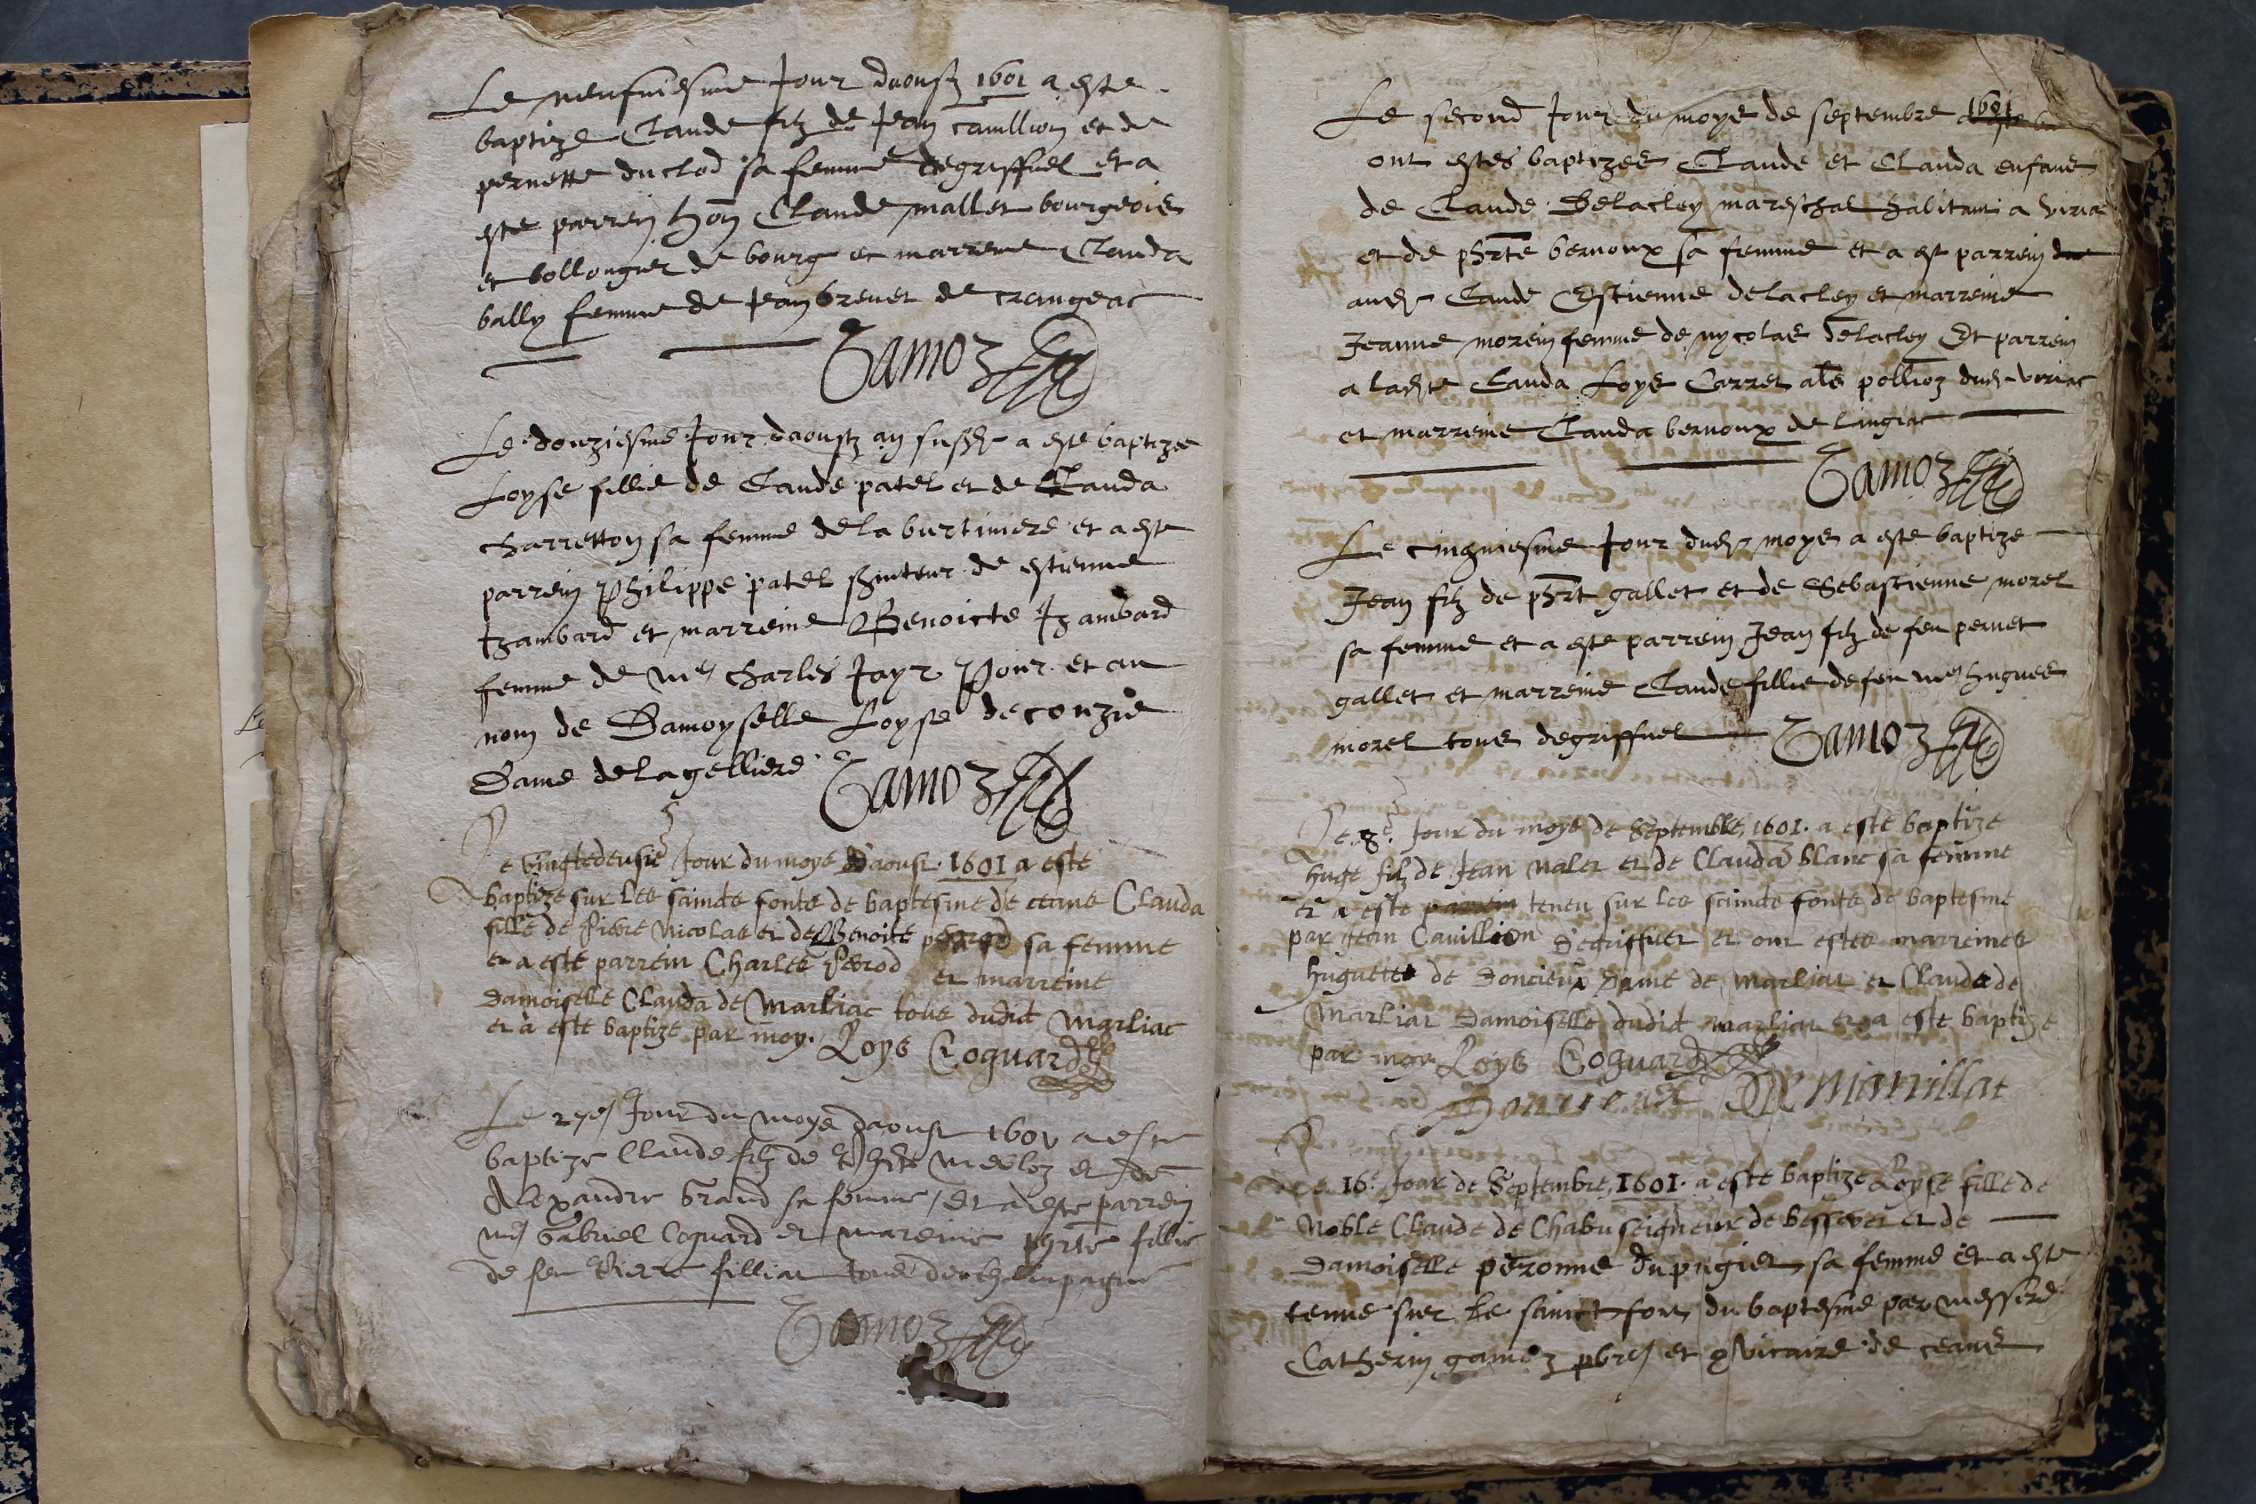 Le neufuiesme Jour daoust 1601 a este
baptize Claude filz de Jean cauillion et de
pernette duclod sa femme degriffuel et a
este parrein hon Claude mallet bourgeois
et bollongier de bourg et marreine Clauda
bally femme de Jean brenet de crangeac
Gamoz
Le douziesme Jour daoust an susd a este baptize
Loyse fillie de Claude patel et de Clauda
charretton sa femme de la burtiniere et a este
parrein Philippe patel de estienne
Jzambard et marreine Benoicte Jzambard
femme de me Charles Jayr et au
nom de Damoyselle Loyse de conzie
Dame de la gelliere
Gamoz
Le vingtedeusie Jour du moys Daoust 1601 a este
baptize sur les saincts fonts de baptesme de ceans Clauda
fille de Pierre Nicolas et de Benoite perrod sa femme
et a este parrein Charles Perrod et marreine
Damoiselle Clauda de Marliac tous dudit Marliac
et a este baptize par moy. Loys Coguard
Le 27e Jour du moys daoust 1601 a este
baptize Claude filz de et de
Alexandre Grand sa femme, Et a este parrein
me Gabriel Coguard et mareine fillie
de feu Pierre filliat tous
Gamoz
Le second Jour du moys de septembre 1601
ont estes baptizes Claude et Clauda enfans
de Claude Delacley mareschal habitant a viria
et de phrte bernoux sa femme et a est parrein
aud Claude Estienne delacley et marreine
Jeanne morein femme de nycolas delacley Et parrein
a lad Clauda Loys Carret als pollioz dud viriac
et marreine Clauda bernoux de lingiac
Gamoz
Le cinquiesme Jour dud moys a este baptize
Jean filz de phrt gallet et de Sebastienne morel
sa femme et a este parrein Jean filz de feu pernet
gallet et marreine Claude fillie de feu me hugues
morel tous degriffuel Gamoz
Le 8e. Jour du moys de Septembre 1601. a este baptize
huge filz de Jean Nalet et de Clauda blanc sa femme
et a este parrein teneu sur les saincts fonts de baptesme
par Jean Cauillion Degriffuel et ont estes marreines
huguette de Doncieux Dame de Marliat et Claude de
Marliat Damoiselle dudit marliat et a este baptize
par moy Loys Coguard
Doncieux De Marilliat
Le 16e. Jour de Septembre 1601. a este baptize Loyse fille de
Noble Claude de Chabu seigneur de bessever et de
Damoiselle peronne dupugiet sa femme et a este
tenue sur le sainct fons du baptesme par messire
Catherin gamoz pbre et vicaire de ceans